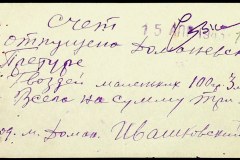 Счет
15 АПР
отпущено Доманевской
Преторе
Гвоздей маленьких 100 гр 3
Всего на сумму три
м. Доман. Ивашковский